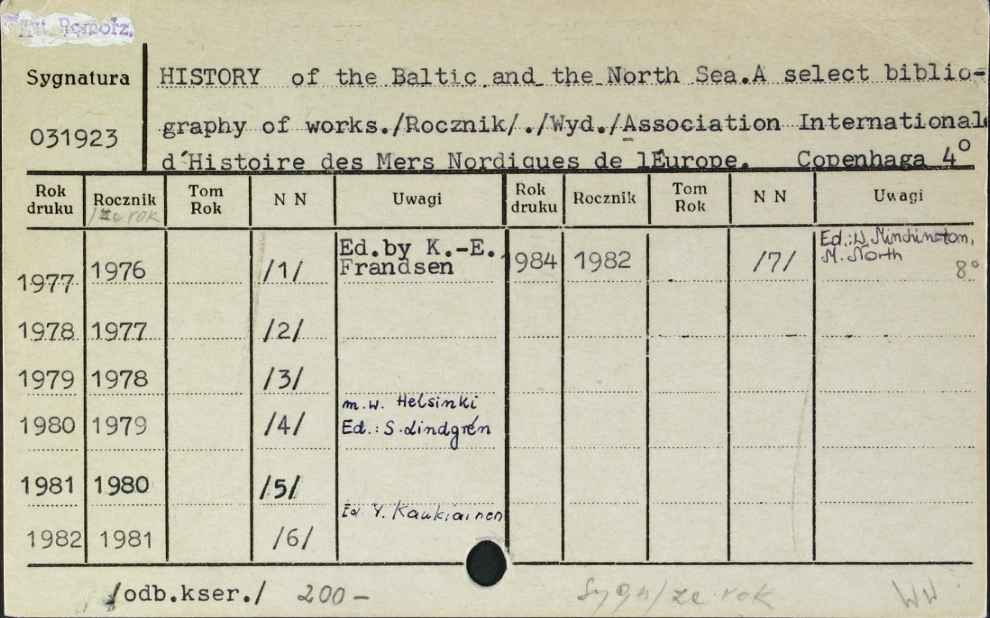 Sygnatura
031923
HISTORY of the Baltic and the North Sea.A select biblio-
graphy of works./Rocznik/./Wyd./Association International
d'Histoire des Mers Nordiques de lEurope. Copenhaga 4°
Rok druku Rocznik Tom Rok N N Uwagi Rok druku Rocznik Tom Rok N N Uwagi
/ze rok
1977 1976 /1/ Ed.by K.-E. Frandsen 1984 1982 /7/ Ed.: W. Minchinton, M. North 8°
1978 1977 /2/
1979 1978 /3/
1980 1979 /4/ m.w. Helsinki Ed.: S.Lindgrén
1981 1980 /5/
1982 1981 /6/ Ed Y. Kaukiainen
/odb.kser./ 200 - Sygn/ze rok